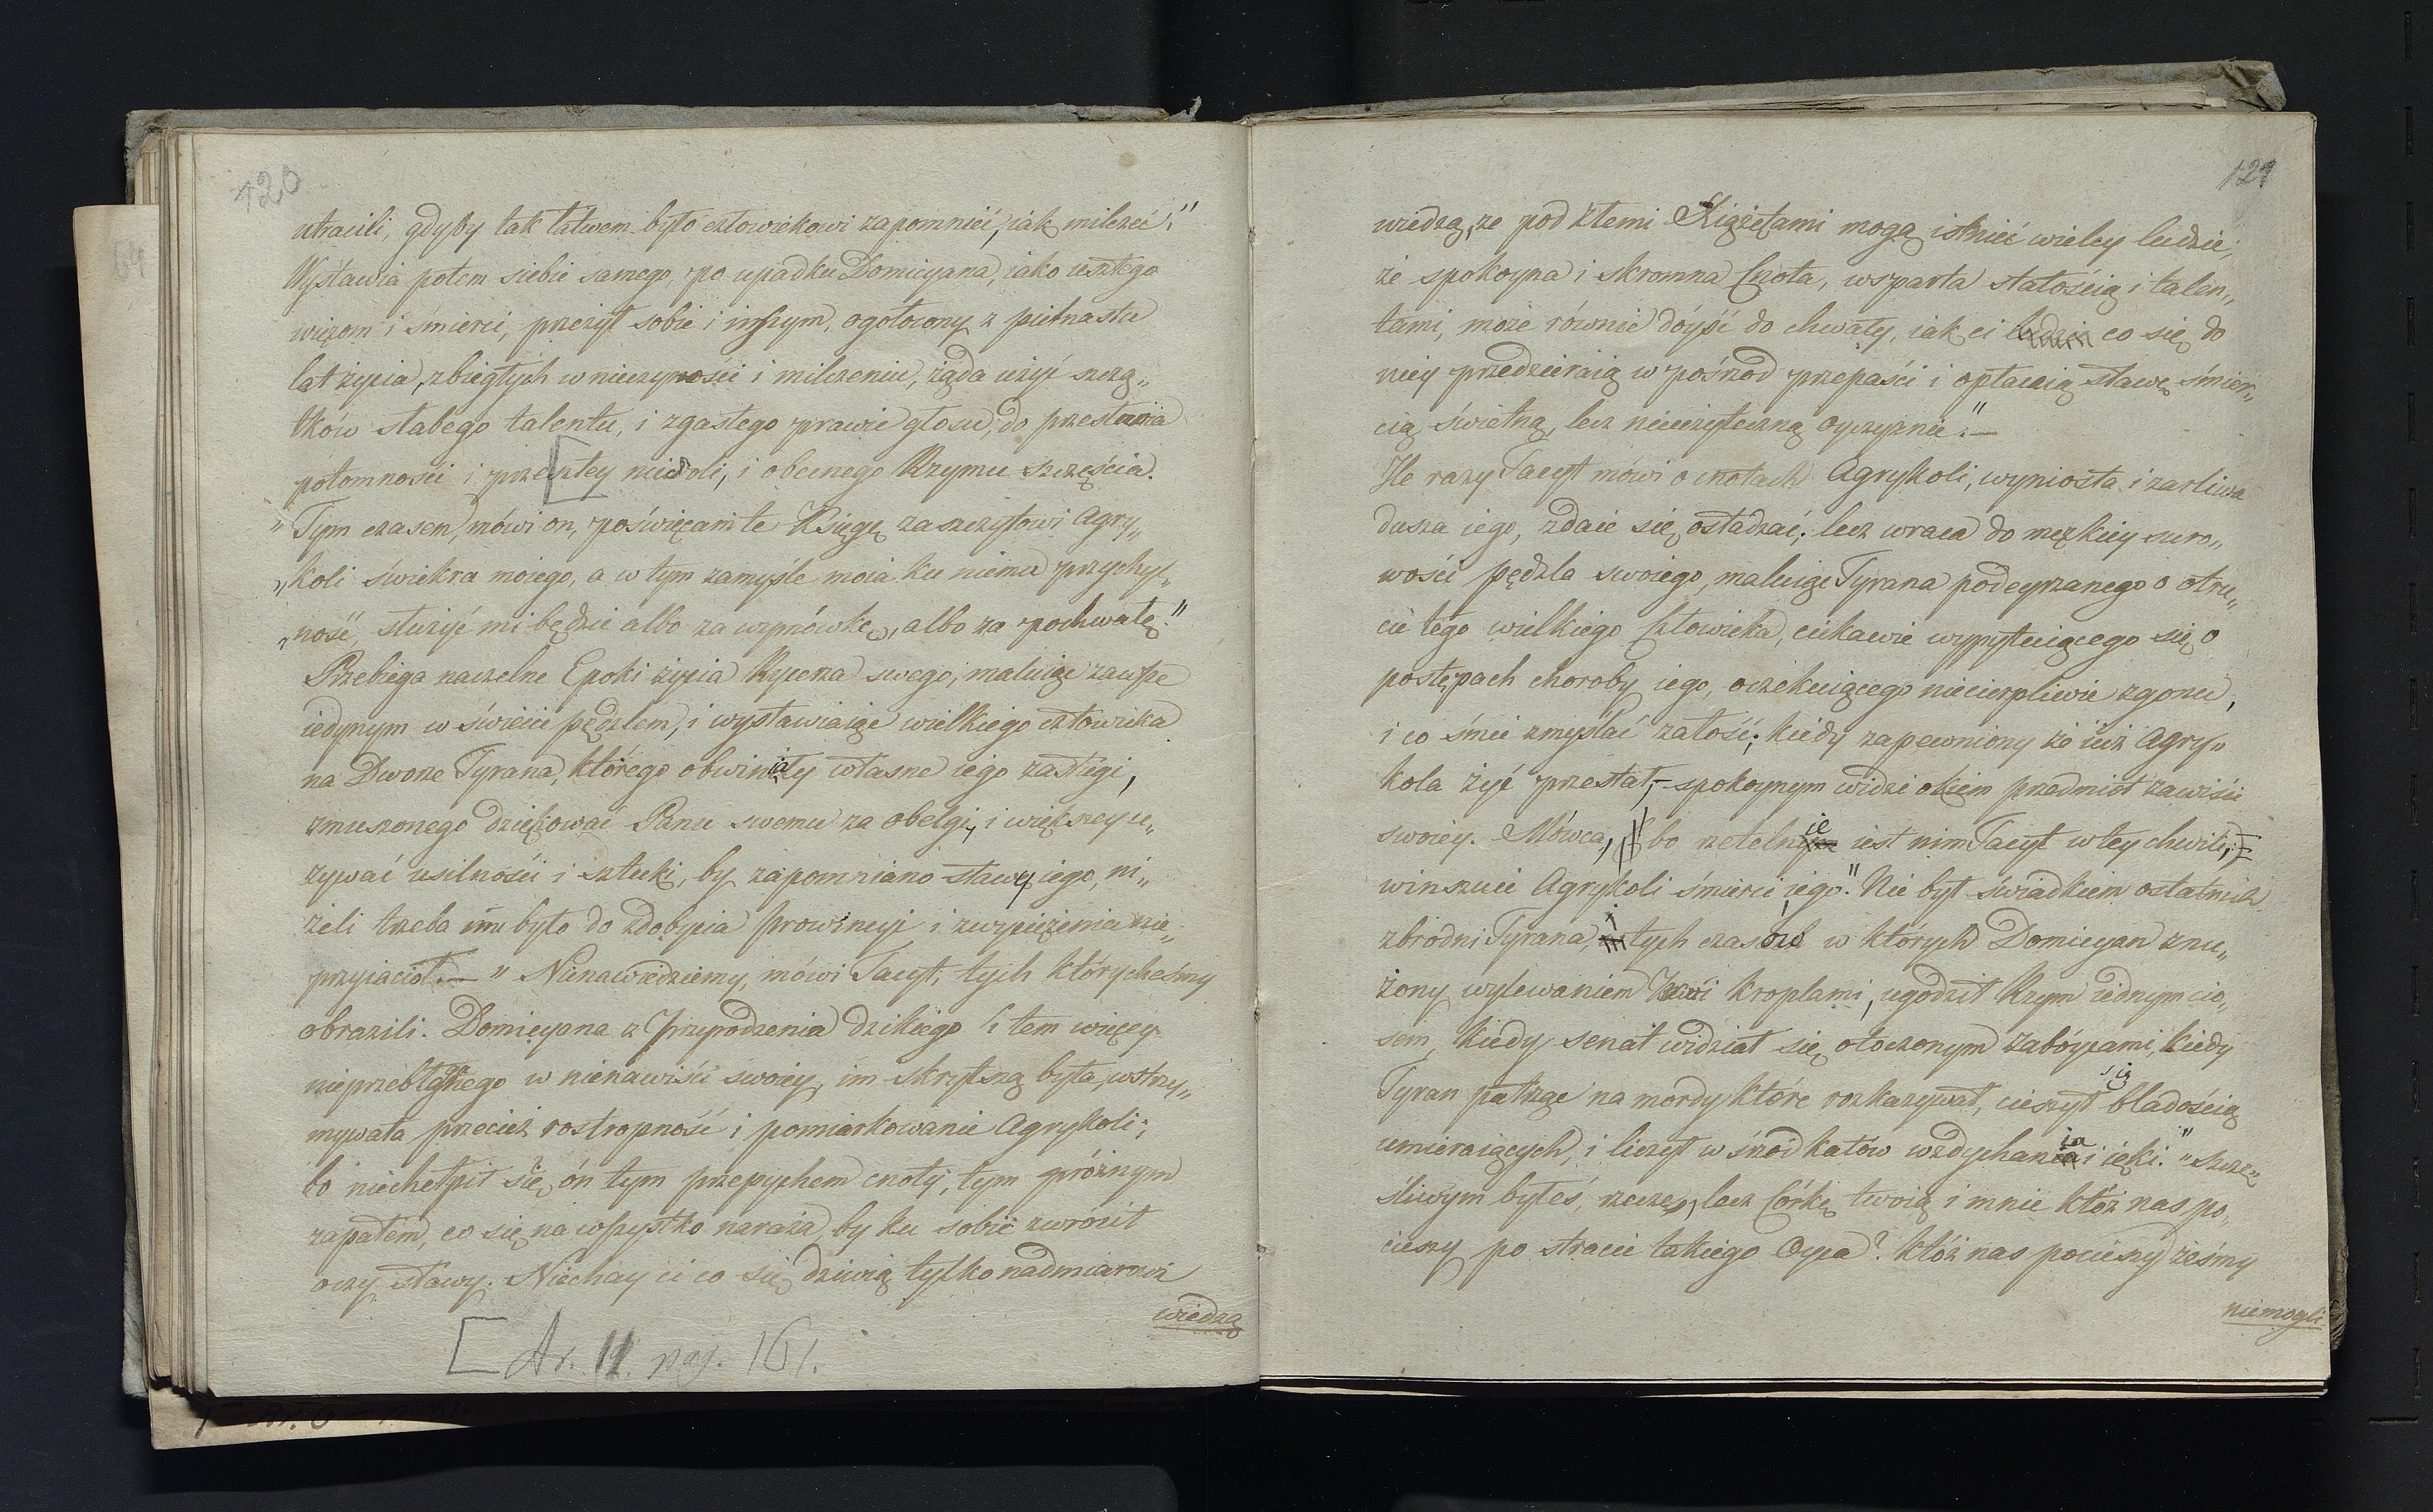 120
utracili, gdyby tak łatwem było człowiekowi zapomnieć, iak milczeć."
Wystawia potem siebie samego, po upadku Domicyana, iako uszłego
więzom i śmierci, przeżył sobie i inszym, ogołocony z piętnastu
lat życia, zbiegłych w nieczynności i milczeniu, żąda użyć szczą„
tków słabego talentu, i zgasłego prawie głosu, do przesłania
potomności i przeszłey niedoli, i obecnego Rzymu szczęścia.
"Tym czasem, mówi on, poświęcam te Księgę zaszczytowi Agry„
„koli świekra moiego, a w tym zamyśle moia ku niemu przychyl„
„ność, służyć mi będzie albo za wymówkę, albo za pochwałę."
Przebiega naczelne Epoki życia Rycerza swego, maluiąc zawsze
iedynym w świecie pędzlem, i wystawiaiąc wielkiego człowieka
na Dworze Tyrana, którego obwiniały własne iego zasługi,
zmuszonego dziękować Panu swemu za obelgi, i większey u„
żywać usilności i sztuki, by zapomniano sławę iego, ni„
żeli trzeba mu było do zdobycia prowincyi i zwyciężenia nie„
przyiaciół.— " Nienawidziemy, mówi Tacyt, tych którycheśmy
obrazili. Domicyana z Przyrodzenia dzikiego i tem więcey
nieprzebłaganego w nienawiści swoiey, im skrytszą była, wstrzy„
mywała przecież rostropność i pomiarkowanie Agrykoli;
bo niechełpił się ón tym przepychem cnoty, tym próżnym
zapałem, co się na wszystko naraża, by ku sobie zwrócił
oczy sławy. Niechay ci co się dziwią tylko nadmiarowi
wiedzą
[ Ar. 11. pag. 161.
121
wiedzą, że pod złemi Xiążętami mogą istnieć wielcy ludzie;
że spokoyna i skromna Cnota, wsparta stałością i talen„
tami, może równie dóyść do chwały, iak ci ludzie co się do
niey przedzieraią w pośrzod przepaści i opłacaią sławę śmier„
cią świetną, lecz nieużyteczną oyczyznie."—
Ile razy Tacyt mówi o cnotach Agrykoli, wyniosła i żarliwa
dusza iego, zdaie się osładzać; lecz wraca do męzkiey suro„
wości pędzla swoiego, maluiąc Tyrana podeyrzanego o otru„
cie tego wielkiego Człowieka, ciekawie wypytuiącego się o
postępach choroby iego, oczekuiącego niecierpliwie zgonu,
i co śmie zmyślać żałość; kiedy zapewniony że iuż Agry„
kola żyć przestał,– spokoynym widzi okiem przedmiot zawiści
swoiey. Mówca, bo rzetelnie iest nim Tacyt w tey chwili,
winszuie Agrykoli śmierci iego." Nie był świadkiem ostatnich
zbrodni Tyrana, i tych czasów w których Domicyan znu„
żony wylewaniem Krwi kroplami, ugodził Rzym iednym cio„
sem, kiedy senat widział się otoczonym zabóycami, kiedy
Tyran patrząc na mordy które rozkazywał, cieszył się bladością
umieraiących, i liczył w śród katów wzdychania i ięki." "Szczę„
śliwym byłeś, rzecze, lecz Córkę twoią i mnie któż nas po„
cieszy po stracie takiego Oyca? któż nas pocieszy żeśmy
niemogli